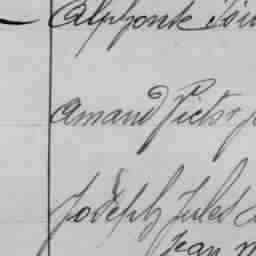 Alphonse
Amand Victor
Joseph Jules
Jean